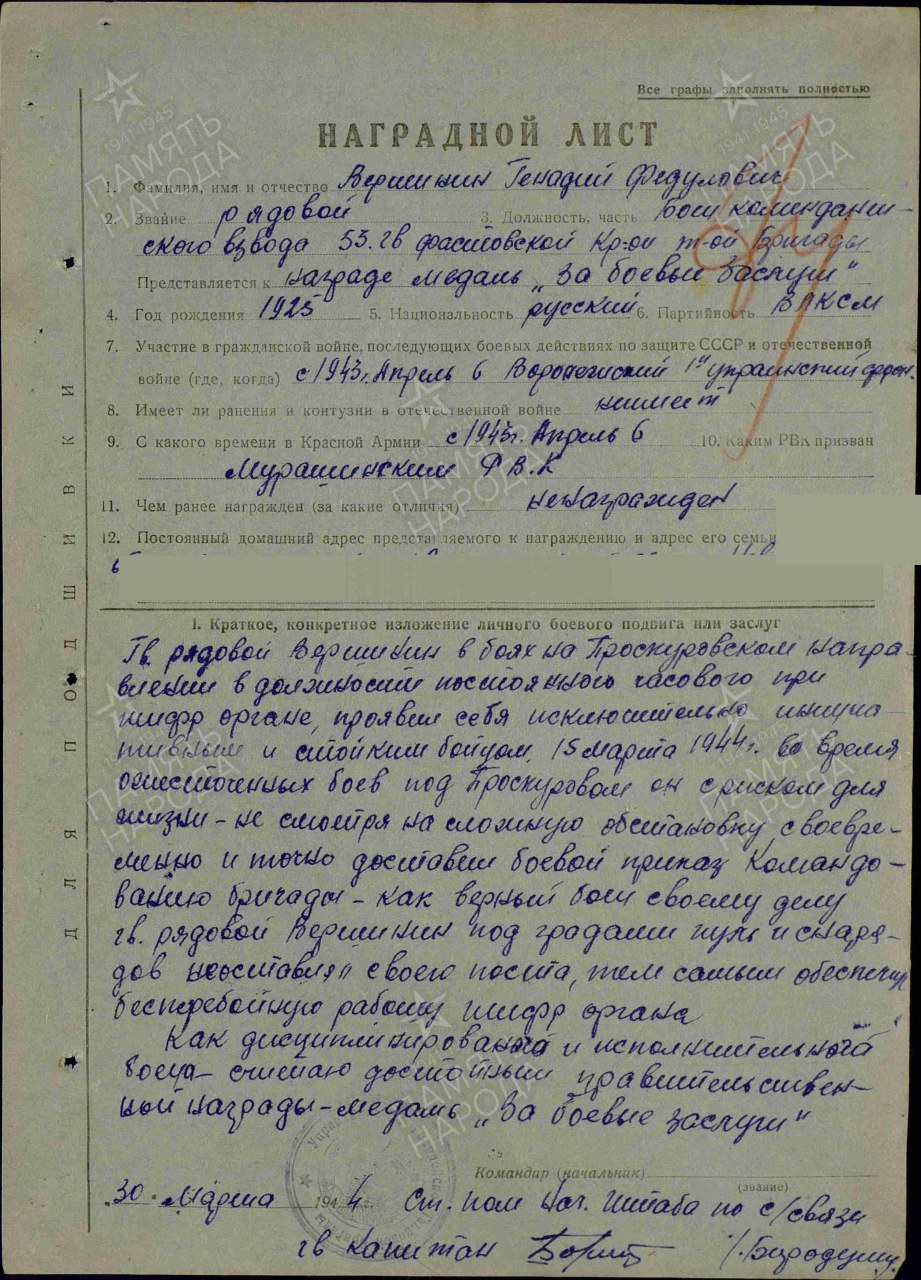 Все графы заполнять полностью
НАГРАДНОЙ ЛИСТ
1. Фамилия, имя и отчество Вершинин Генадий Федулович
2. Звание рядовой 3. Должность, часть боец комендант-
ского взвода 53. гв фастовской Кр-ой т-ой бригады
Представляется к награде медаль „За боевые заслуги"
4. Год рождения 1925 5. Национальность русский 6. Партийность ВЛКСМ
7. Участие в гражданской войне, последующих боевых действиях по защите СССР и отечественной
войне (где, когда) с 1943г. Апрель 6 Воронежский 1й украинский фрон.
8. Имеет ли ранения и контузии в отечественной войне неимеет
9. С какого времени в Красной Армии с 1943г. Апрель 6 10. Каким РВК призван
Мурашинским Р.В.К
11. Чем ранее награжден (за какие отличия) ненагражден
12. Постоянный домашний адрес представляемого к награждению и адрес его семьи
I. Краткое, конкретное изложение личного боевого подвига или заслуг
Гв. рядовой Вершинин в боях на Проскуровском напра-
влении в должности постоянного часового при
шифр органе, проявил себя исключительно иници-
тивным и стойким бойцом, 15 марта 1944г. во время
ожесточенных боев под Проскуровом он с риском для
жизни – не смотря на сложную обстановку своевре-
менно и точно доставил боевой приказ Командо-
ванию бригады – как верный боец своему делу
гв. рядовой Вершинин под градами пуль и снаря-
дов неоставлял своего поста, тем самым обеспечил
бесперебойную работу шифр органа
Как дисциплинированного и исполнительного
бойца – считаю достойным правительствен-
ной награды – медаль „За боевые заслуги"
Командир (начальник)
(звание)
„30" Марта 1944 г. Ст. пом нач. штаба по с/связи
гв капитан
ДЛЯ ПОДШИВКИ
1941-1945
ПАМЯТЬ НАРОДА